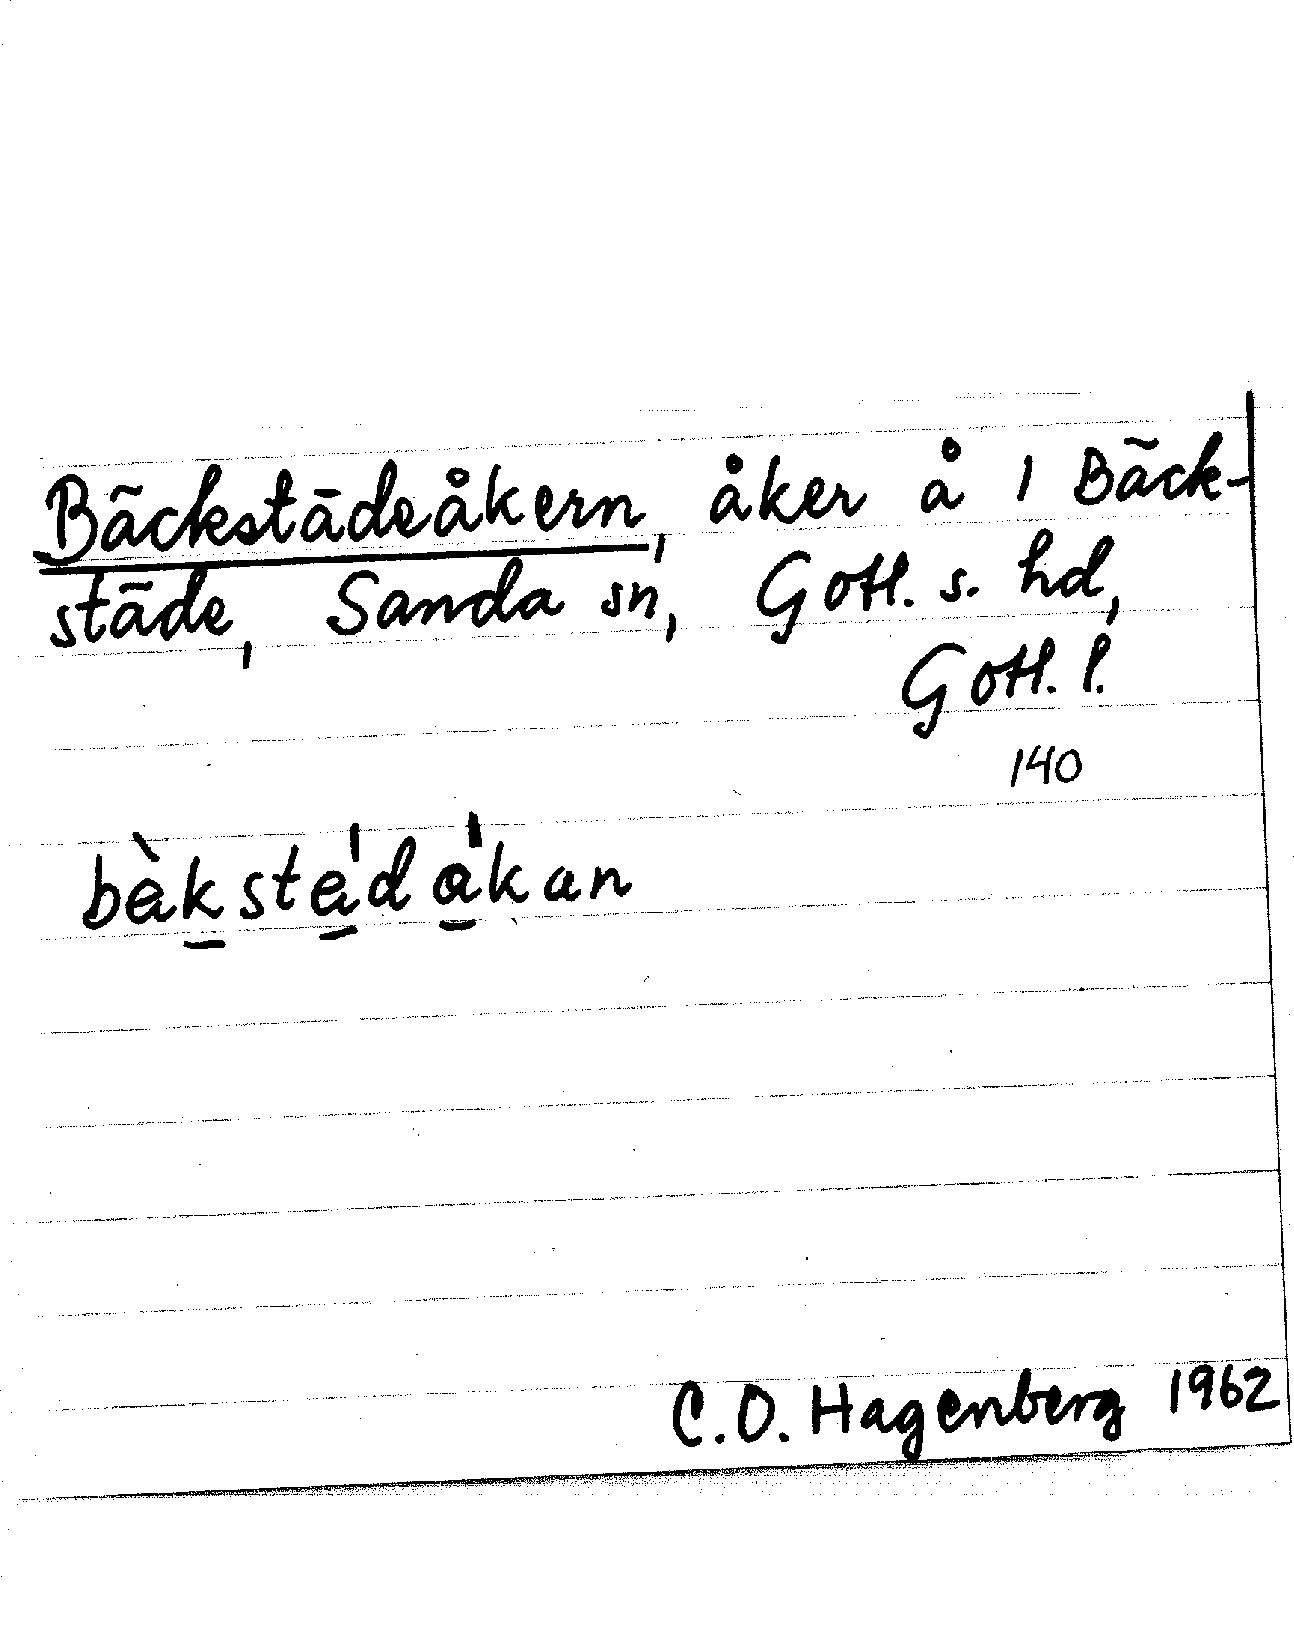 Bäckstädeåkern, åker å 1 Bäck-
städe, Sanda sn, Gotl. s. hd,
Gotl. l.
140
bèkstéd ákan
C.O. Hagenberg 1962